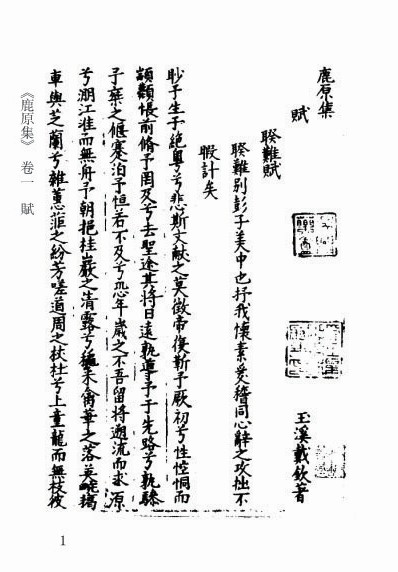 鹿原集
賦
玉溪戴欽著
睽難賦
睽難別彭子美中也抒我懷素爰同心辭之攻拙不
暇計矣
眇予生于絶粵兮悲斯文獻之莫徵帝復靳予厥初兮性悾恫而
顓悵前脩予罔及兮去聖途其將日遠軌導予于先路兮執驂
子棄之偃蹇泊予恒若不及兮恐年歲之不吾留將遡流而求源
兮溯江淮而無舟予朝挹桂巖之清露兮采華之落英畹揭
車與芝蘭兮雜蕙茝之紛芳嗟道周之杕杜兮上童龍而無枝彼
《鹿原集》 卷一 賦
1